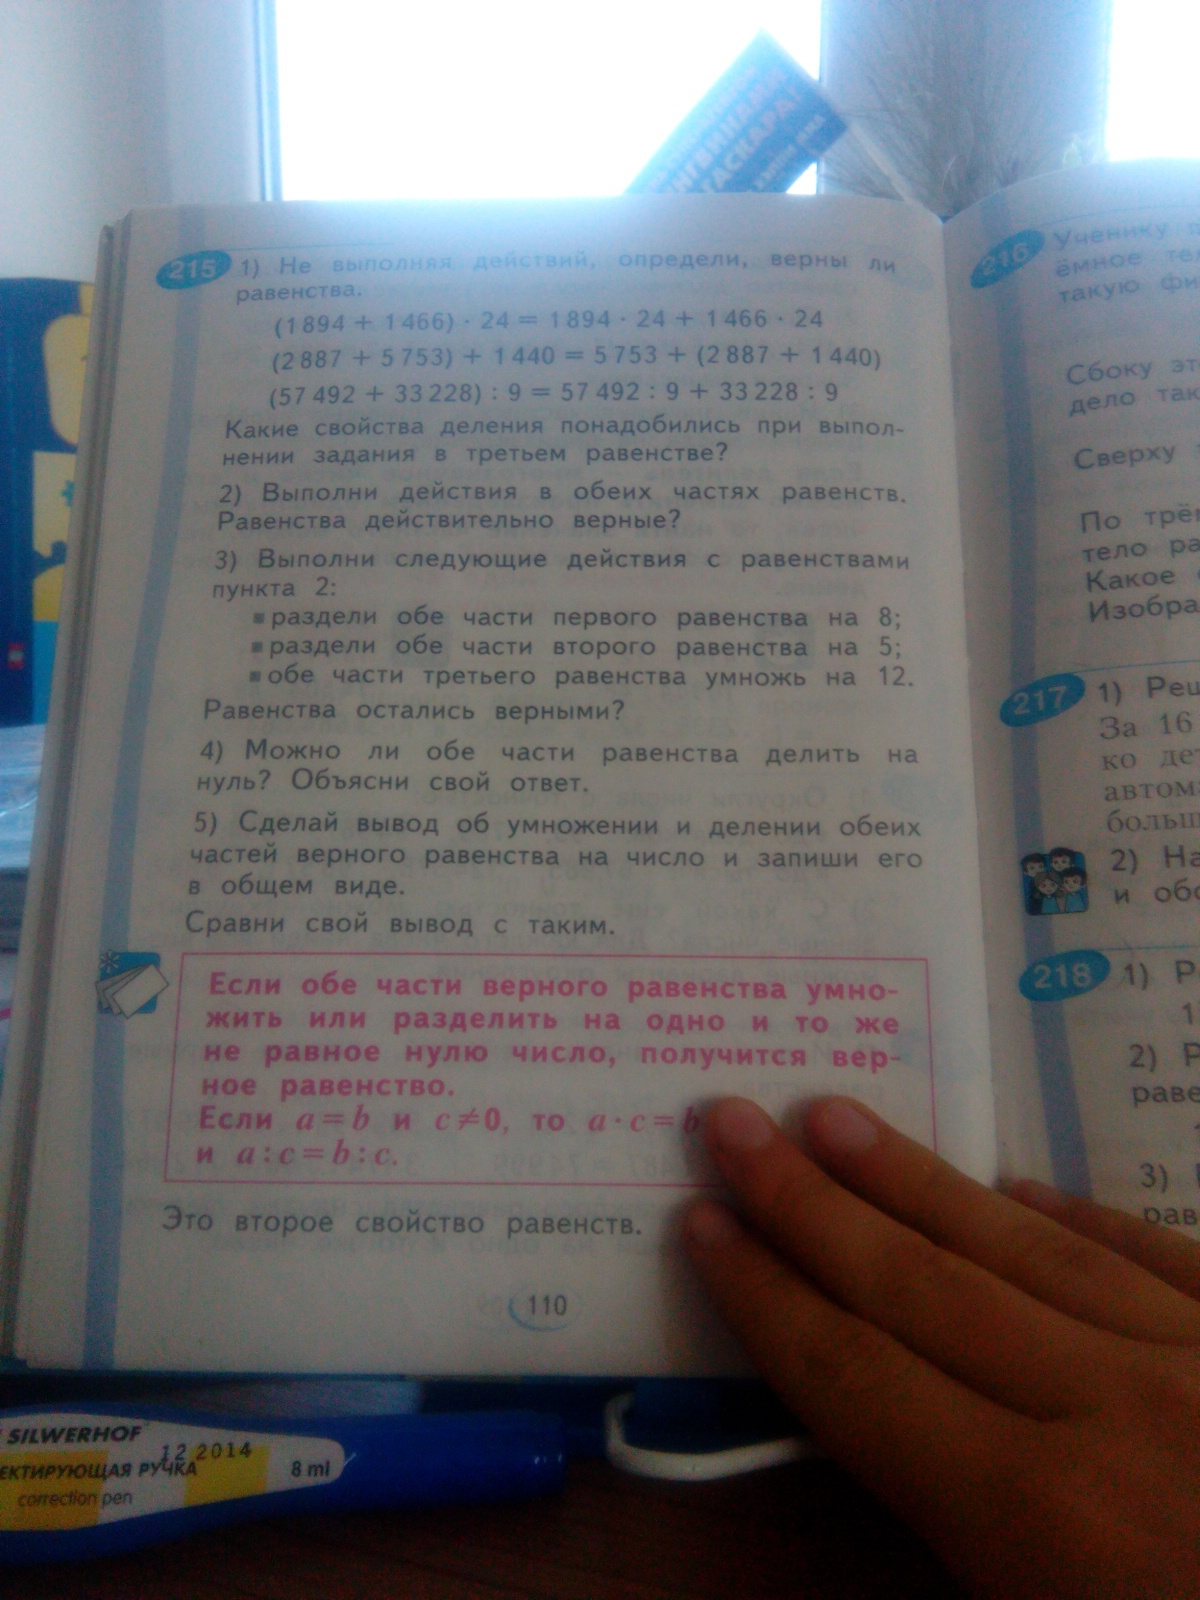 215 1) Не выполняя действий, определи, верны ли
равенства.
(1 894 + 1 466) · 24 = 1 894 · 24 + 1 466 · 24
(2 887 + 5 753) + 1 440 = 5 753 + (2 887 + 1 440)
(57 492 + 33 228) : 9 = 57 492 : 9 + 33 228 : 9
Какие свойства деления понадобились при выпол-
нении задания в третьем равенстве?
2) Выполни действия в обеих частях равенств.
Равенства действительно верные?
3) Выполни следующие действия с равенствами
пункта 2:
▪ раздели обе части первого равенства на 8;
▪ раздели обе части второго равенства на 5;
▪ обе части третьего равенства умножь на 12.
Равенства остались верными?
4) Можно ли обе части равенства делить на
нуль? Объясни свой ответ.
5) Сделай вывод об умножении и делении обеих
частей верного равенства на число и запиши его
в общем виде.
Сравни свой вывод с таким.
Если обе части верного равенства умно-
жить или разделить на одно и то же
не равное нулю число, получится вер-
ное равенство.
Если a = b и c ≠ 0, то a · c = b
и a : c = b : c.
Это второе свойство равенств.
110
216 Ученику
ёмное
такую
Сбоку
дело
Сверху
По
тело
Какое
217 1)
За 16
2)
и
218 1)
1
2)
3)
SILWERHOF
12 2014
РУЧКА
8 ml
correction pen